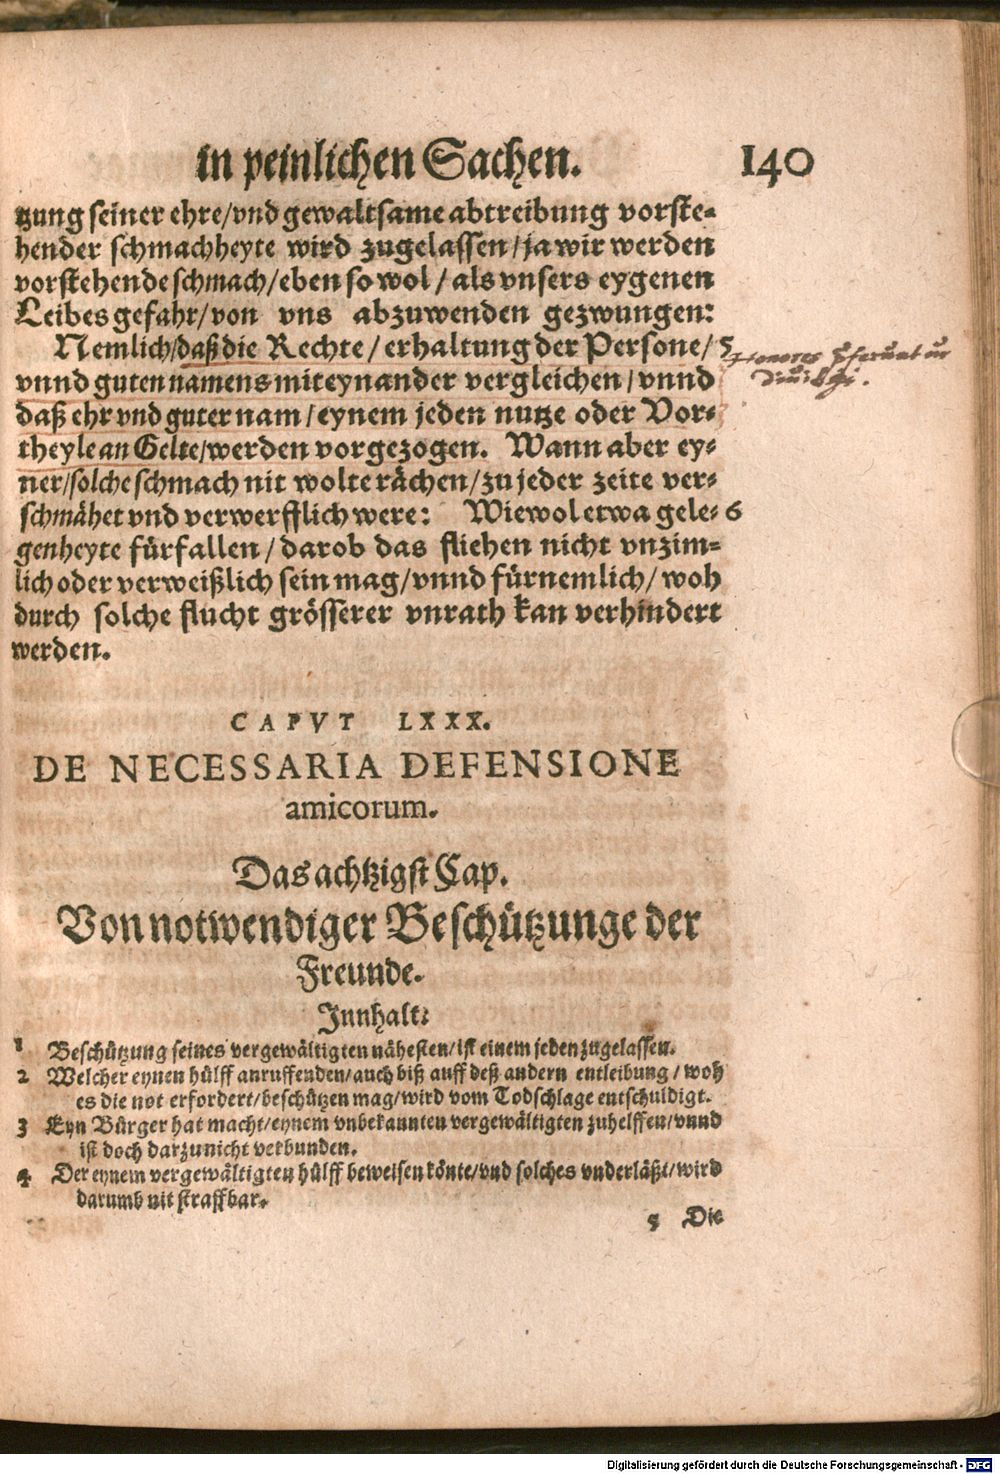 in peinlichen Sachen. 140
tzung seiner ehre/vnd gewaltsame abtreibung vorste-
hender schmachheyte wird zugelassen/ja wir werden
vorstehende schmach/eben so wol/als vnsers eygenen
Leibes gefahr/von vns abzuwenden gezwungen:
Nemlich/daß die Rechte/erhaltung der Persone/ 5
vnnd guten namens mit eynander vergleichen/vnnd
daß ehr vnd guter nam/eynem jeden nutze oder Vor-
theyle an Gelte/werden vorgezogen. Wann aber ey-
ner/solche schmach nit wolte rächen/zu jeder zeite ver-
schmähet vnd verwerfflich were: Wiewol etwa gele- 6
genheyte fürfallen/darob das fliehen nicht vnzim-
lich oder verweißlich sein mag/vnnd fürnemlich/woh
durch solche flucht grösserer vnrath kan verhindert
werden.
CAPVT LXXX.
DE NECESSARIA DEFENSIONE
amicorum.
Das achtzigst Cap.
Von notwendiger Beschützunge der
Freunde.
Innhalt:
1 Beschützung seines vergewältigten nähesten/ist einem jeden zugelassen.
2 Welcher eynen hülff anruffenden/auch biß auff deß andern entleibung/woh
es die not erfordert/beschützen mag/wird vom Todschlage entschuldigt.
3 Eyn Bürger hat macht/eynem vnbekannten vergewältigten zuhelffen/vnnd
ist doch darzu nicht verbunden.
4 Der eynem vergewältigten hülff beweisen könte/vnd solches vnderläßt/wird
darumb nit straffbar.
5 Die
Digitalisierung gefördert durch die Deutsche Forschungsgemeinschaft - DFG